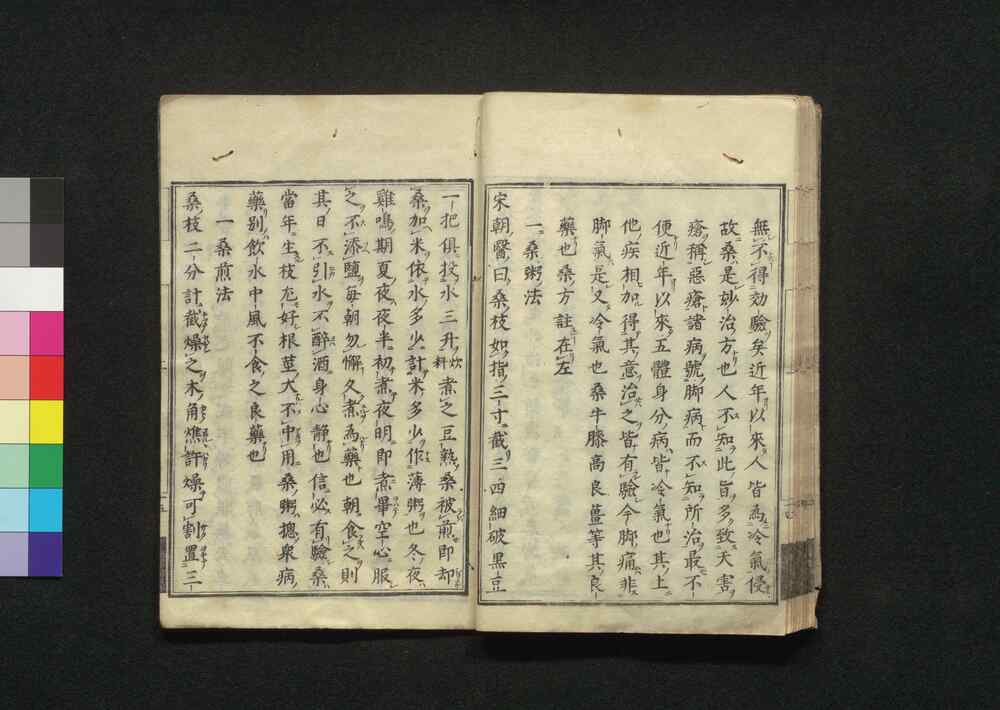 無不得効驗矣近年以來人皆為冷氣侵
故桑是妙治方也人不知此旨多致夭害
瘡稱惡瘡諸病號脚病而不知所治最不
便近年以來五體身分病皆冷氣也其上
他疾相加得其意治之皆有驗今脚痛非
脚氣是又冷氣也桑牛膝高良薑等其良
藥也桑方註在左
一桑粥法
宋朝醫曰桑枝如指三寸截三四細破黑豆
一把俱投水三升炊料煮之豆熟桑被煎即却
桑加米依水多少計米多少作薄粥也冬夜
雞鳴期夏夜夜半初煮夜明即煮畢空心服
之不添鹽每朝勿懈久煮為藥也朝食之則
其日不引水不醉酒身心静也信必有驗桑
當年生枝尤好根莖大不中用桑粥揔衆病
藥別飲水中風不食之良藥也
一桑煎法
桑枝二分計截燥之木角燋許燥可割置三